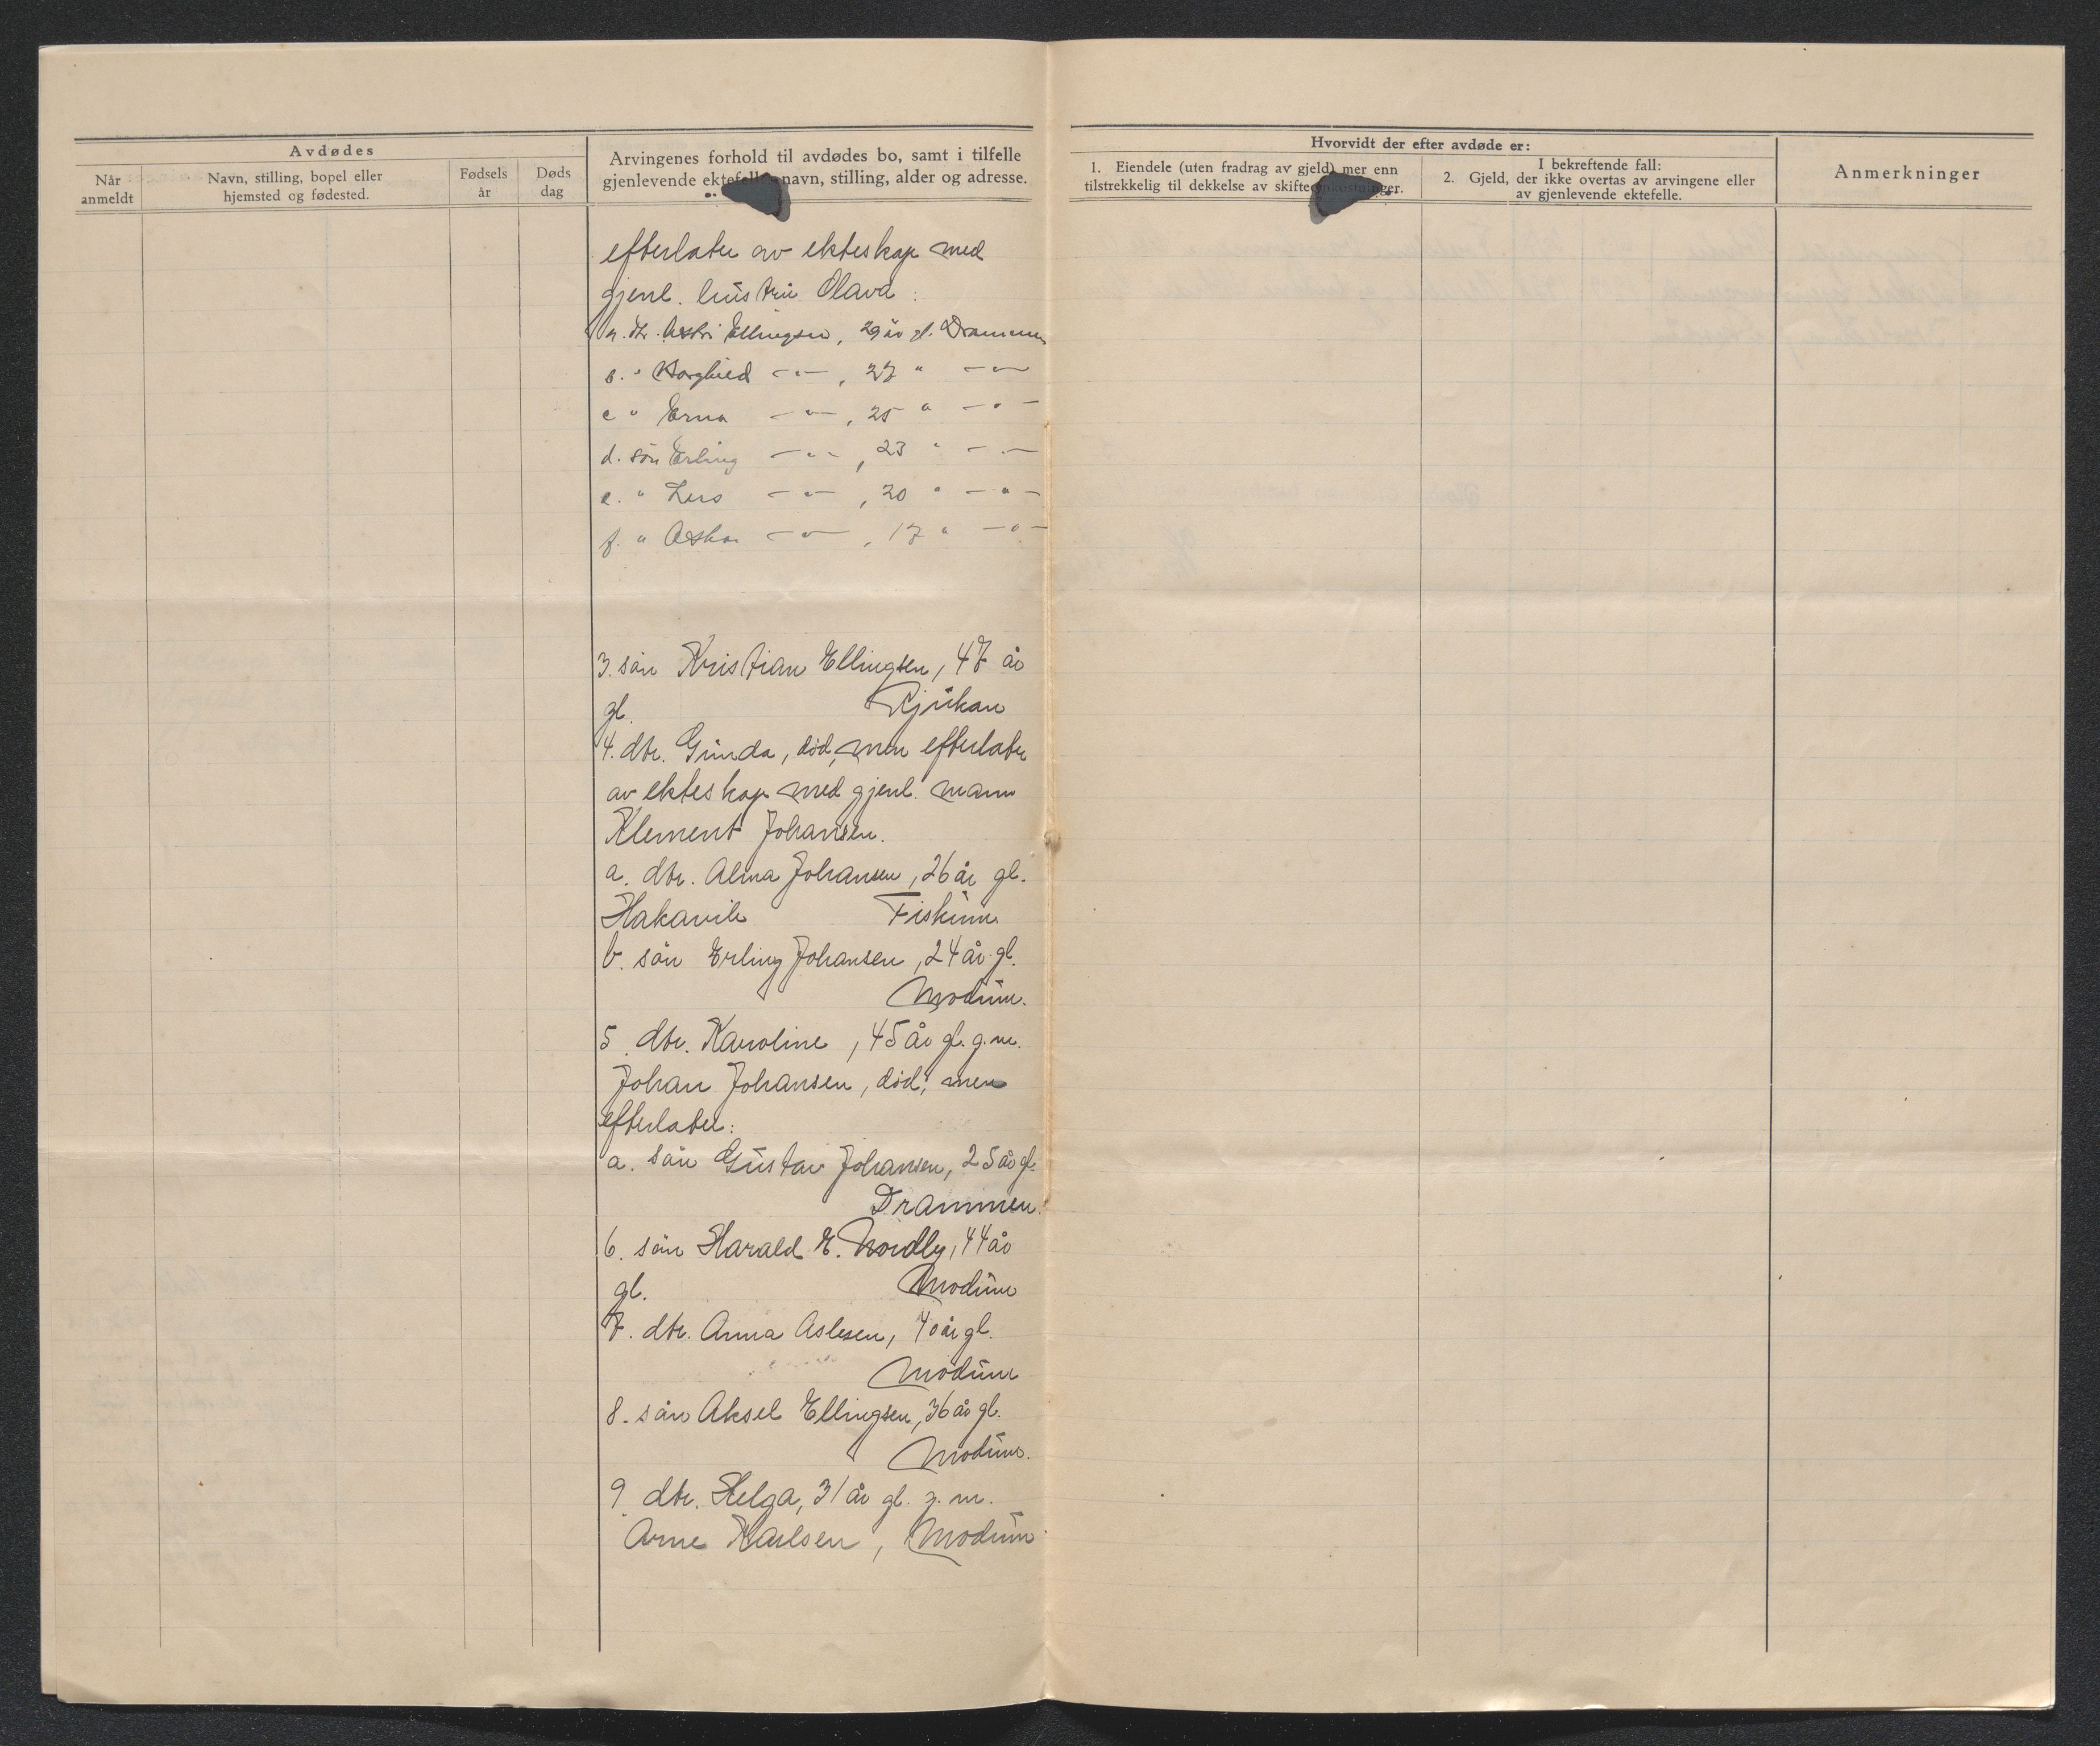 Avdødes
Når
anmeldt
Navn, stilling, bopel eller
hjemsted og fødested.
Fødsels
år
Døds
dag
Arvingenes forhold til avdødes bo, samt i tilfelle
gjenlevende ektefelles navn, stilling, alder og adresse.
Hvorvidt der efter avdøde er:
1. Eiendele (uten fradrag av gjeld) mer enn
tilstrekkelig til dekkelse av skifteomkostninger.
I bekreftende fall:
2. Gjeld, der ikke overtas av arvingene eller
av gjenlevende ektefelle.
Anmerkninger
efterlater av ekteskap med
gjenl. hustru Olava:
a. dtr. Astri Ellingsen, 29 år gl. Drammen
b. " Borghild -"-, 27 " -"-
c " Erna -"-, 25 " -"-
d. sön Erling -"-, 23 " -"-
e. " Lars -"-, 20 " -"-
f. " -"-, 17 " -"-
3. sön Kristian Ellingsen, 47 år
gl. Rjukan
4. dtr. Gunda, död, men efterlater
av ekteskap med gjenl. mann
Klement Johansen.
a. dtr. Alma Johansen, 26 år gl.
Hakavik Fiskum
b. sön Erling Johansen, 24 år gl.
Modum.
5. dtr. Karoline, 45 år gl. g.m.
Johan Johansen, död, men
efterlater:
a. sön Gustav Johansen, 25 år gl.
Drammen.
6. sön Harald E. Nordby, 44 år
gl. Modum
7. dtr. Anna Aslesen, 40 år gl.
Modum
8. sön Aksel Ellingsen, 36 år gl.
Modum.
9 dtr. Helga, 31 år gl. g. m.
Arne Karlsen, Modum